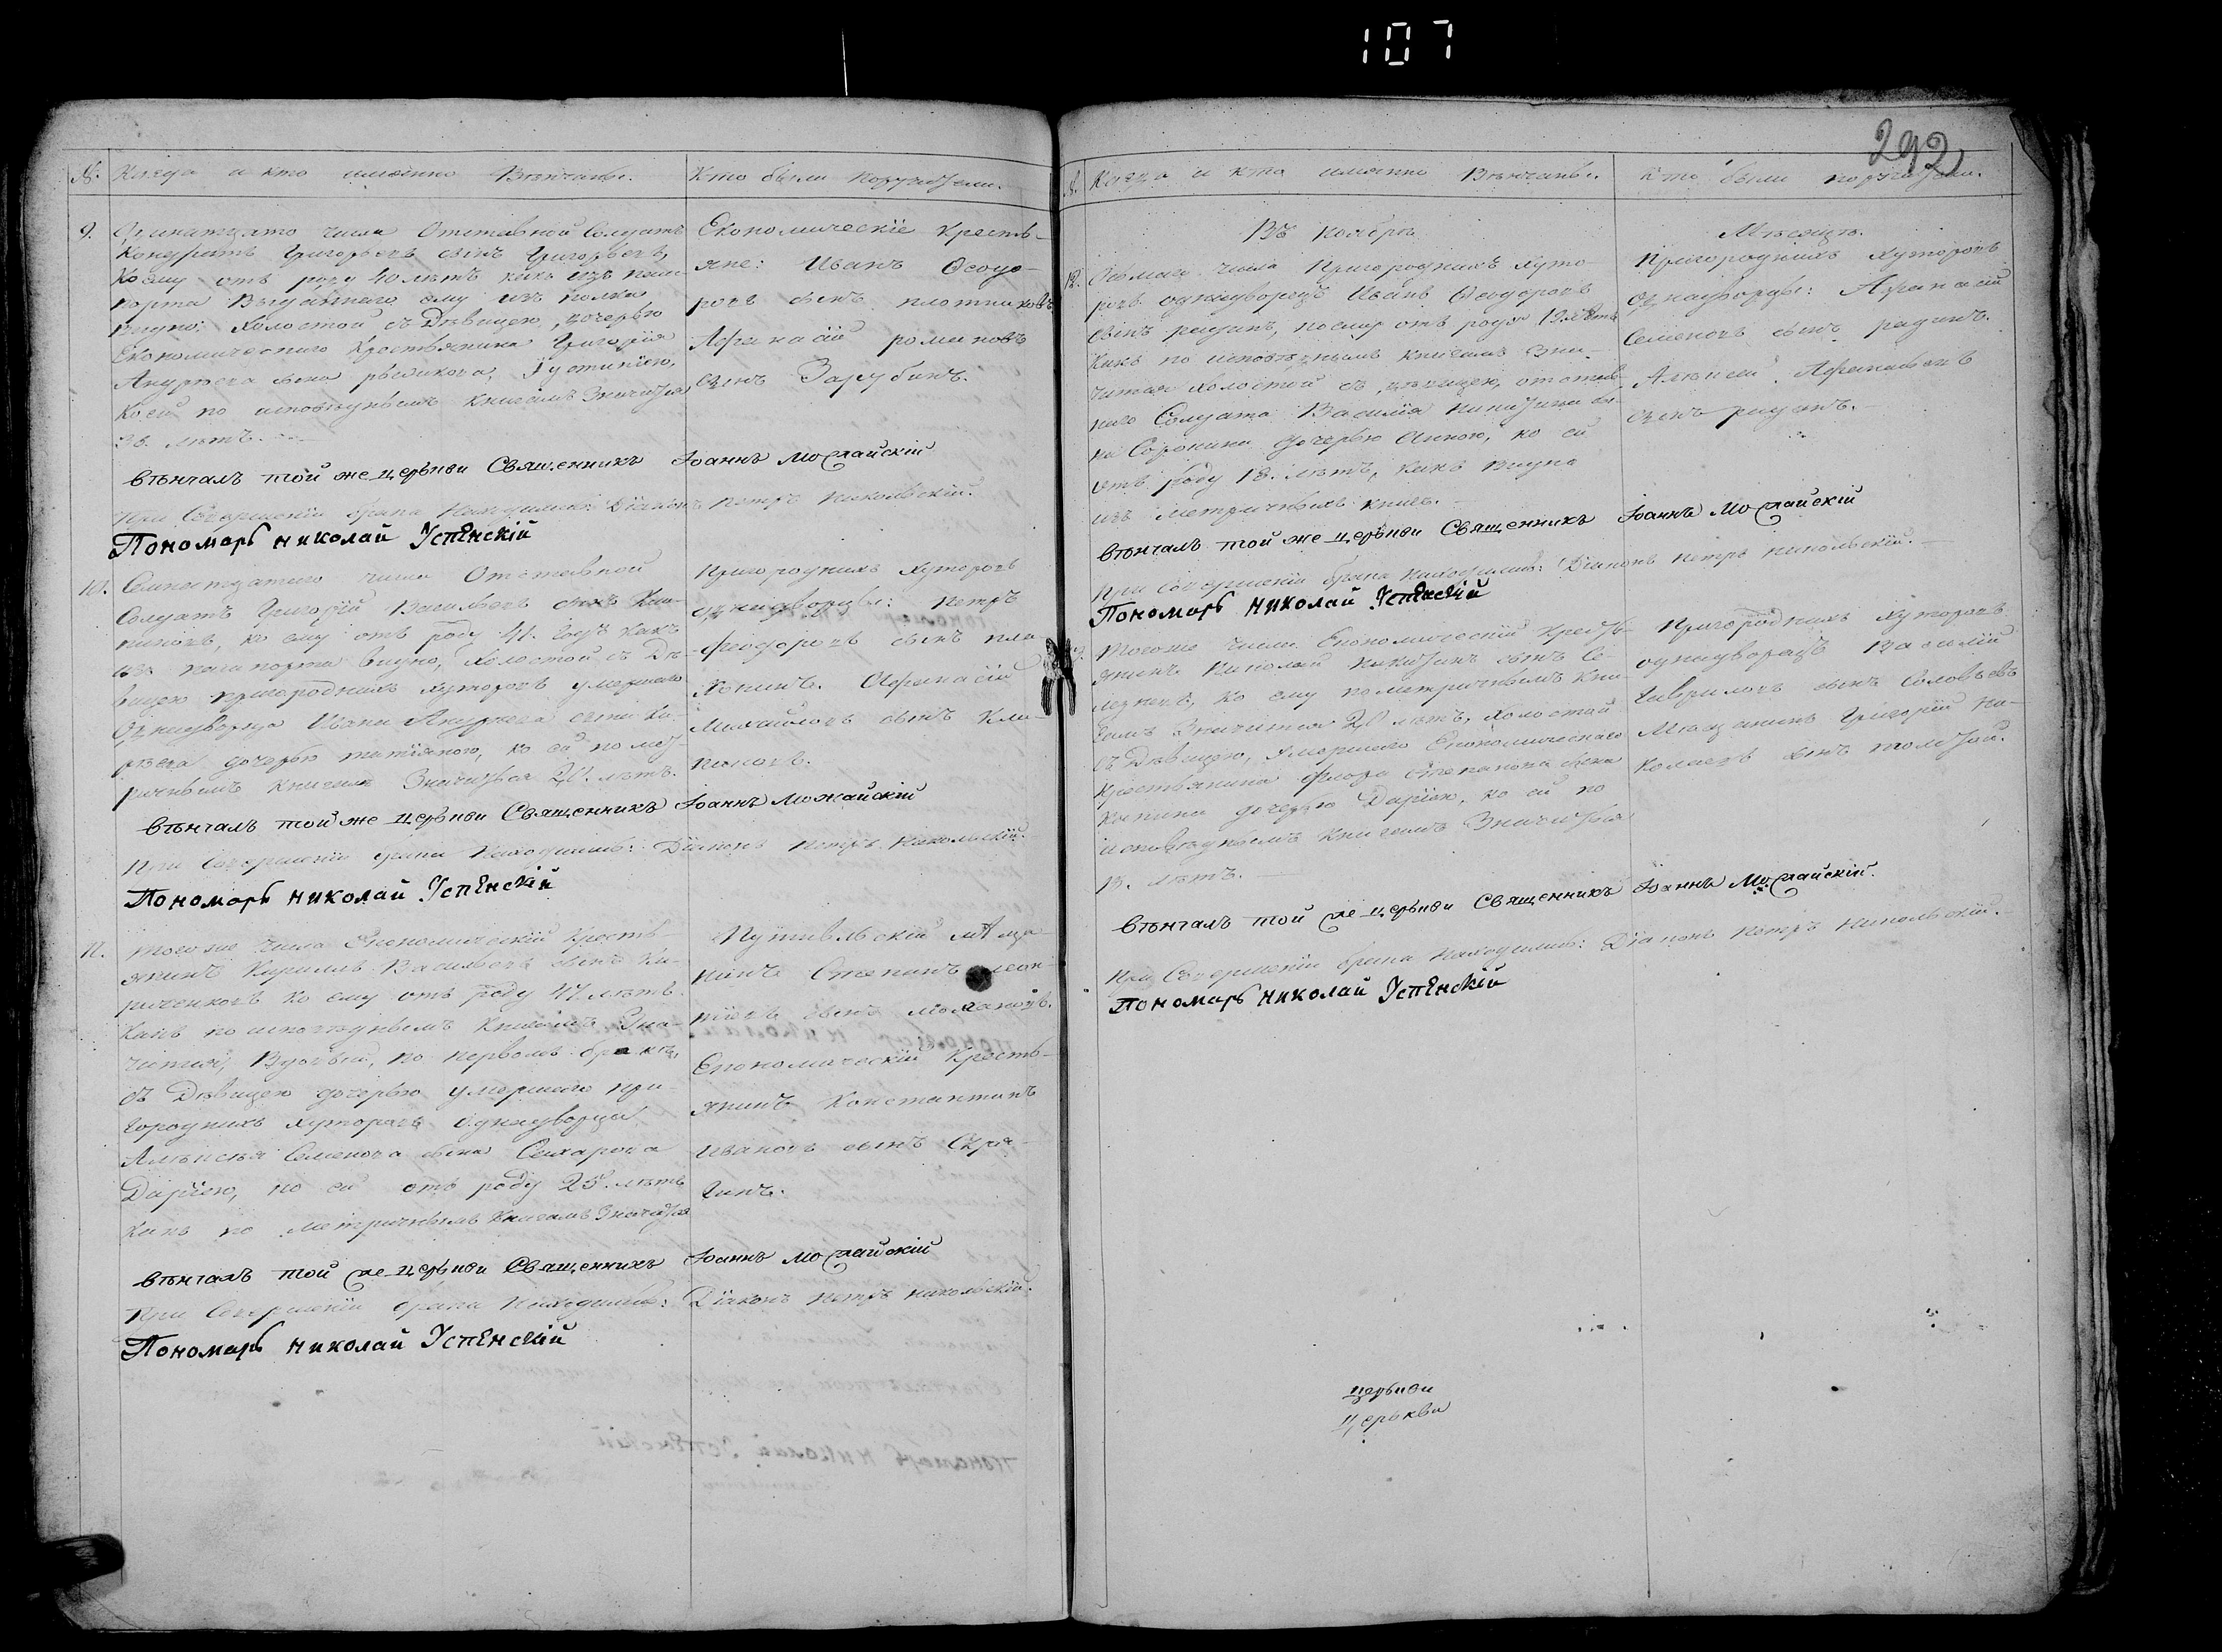 107
292
№. Когда и кто имянно Венчаны. Кто были поручители.
9. Одинатцато числа Отставной Солдатъ
Кондратъ Григорьевъ сынъ Григорьевъ,
коему отъ роду 40 лѣтъ какъ изъ паш-
порта выданнаго ему изъ полка
видно; холостой съ Дѣвицею, дочерью
Економическаго Крестьянина Григорія
Андреева сына
коей по исповѣднымъ книгамъ Значится
лѣтъ.
Економическіе Кресть-
яне: Иванъ Ѳеодо-
ровъ сынъ плотниковъ
Афанасій романовъ
сынъ Зарубинъ.
вѣнчалъ той же церькви Священникъ Іоаннъ Можайскій
При Совершеніи брака Находились Діаконъ петръ Никольскій.
Пономарь николай Успенскій
10. Семнадцатаго числа Отставной
Солдатъ Григорій Васильевъ сынъ
ко ему отъ роду 41. годъ какъ
изъ пашпорта видно, холостой съ Дѣ-
вицею пригороднихъ хуторовъ умершаго
Однодворца Ивана Андреева сына
дочерью татіяною, ко ей по мет-
ричнымъ книгамъ Значится 20. лѣтъ.
пригороднихъ хуторовъ
однодворцы: Петръ
феодоровъ сынъ пла-
Афанасій
Михайловъ сынъ
вѣнчалъ той же церькви Священникъ Іоаннъ Можайскій
При Совершеніи брака Находились: Діаконъ петръ Никольскій.
Пономарь николай Успенскій
11. Того же числа Економическій Кресть-
янинъ Кирилъ Васильевъ сынъ Ки-
риченковъ ко ему отъ роду 47. лѣтъ
какъ по исповѣднымъ книгамъ Зна-
чится, Вдовый, по первомъ бракѣ,
съ Дѣвицею дочерью умершаго при-
городнихъ хуторовъ однодворца
Алексѣя Семенова сына
Даріею, ко ей отъ роду 25. лѣтъ
какъ по метричнымъ Книгамъ Значится
Путивльскій мѣща-
нинъ Степанъ леон-
тіевъ сынъ
Економическій Кресть-
янинъ Константинъ
Ивановъ сынъ
вѣнчалъ той же церькви Священникъ Іоаннъ Можайскій
При Совершеніи брака Находились: Діаконъ петръ никольскій.
Пономарь николай Успенскій
№. Когда и кто имянно Венчаны. Кто были поручители.
Въ Ноябрѣ Мѣсяцѣ.
12. Осмаго числа Пригороднихъ хуто-
ровъ однодворецъ Иванъ Ѳеодоровъ
сынъ рединъ, коему отъ роду 19 лѣтъ
Какъ по исповѣднымъ книгамъ зна-
чится холостой съ дѣвицею, отстав-
наго Солдата Василія Никитина сы-
на Соронина дочерью Анною, ко ей
отъ роду 18. лѣтъ, какъ видно
изъ метричныхъ книгъ.
Пригороднихъ хуторовъ
Однодворцы: Афанасій
Семеновъ сынъ рединъ.
Алексей Афанасьевъ
сынъ рединъ.
вѣнчалъ той же церькви Священникъ Іоаннъ Можайскій
При Совершеніи брака находились: Діаконъ петръ никольскій.
Пономарь николай Успенскій
Того же числа Економическій Кресть-
янинъ Николай никитинъ сынъ Се-
ко ему по метричнымъ Кни-
гамъ Значится 20 лѣтъ, холостой
съ Дѣвицею, умершаго Економическаго
крестьянина флора Степанова сына
дочерью Даріею, ко ей по
исповѣднымъ книгамъ Значится
лѣтъ.
Пригороднихъ хуторовъ
однодворецъ Василій
Гавриловъ сынъ Соловьевъ
Мѣщанинъ Григорій Ни-
колаевъ сынъ толстой.
вѣнчалъ той же церькви Священникъ Іоаннъ Можайскій.
При Совершеніи брака Находились: Діаконъ петръ никольскій.
Пономарь николай Успенскій
церькви
Церькви